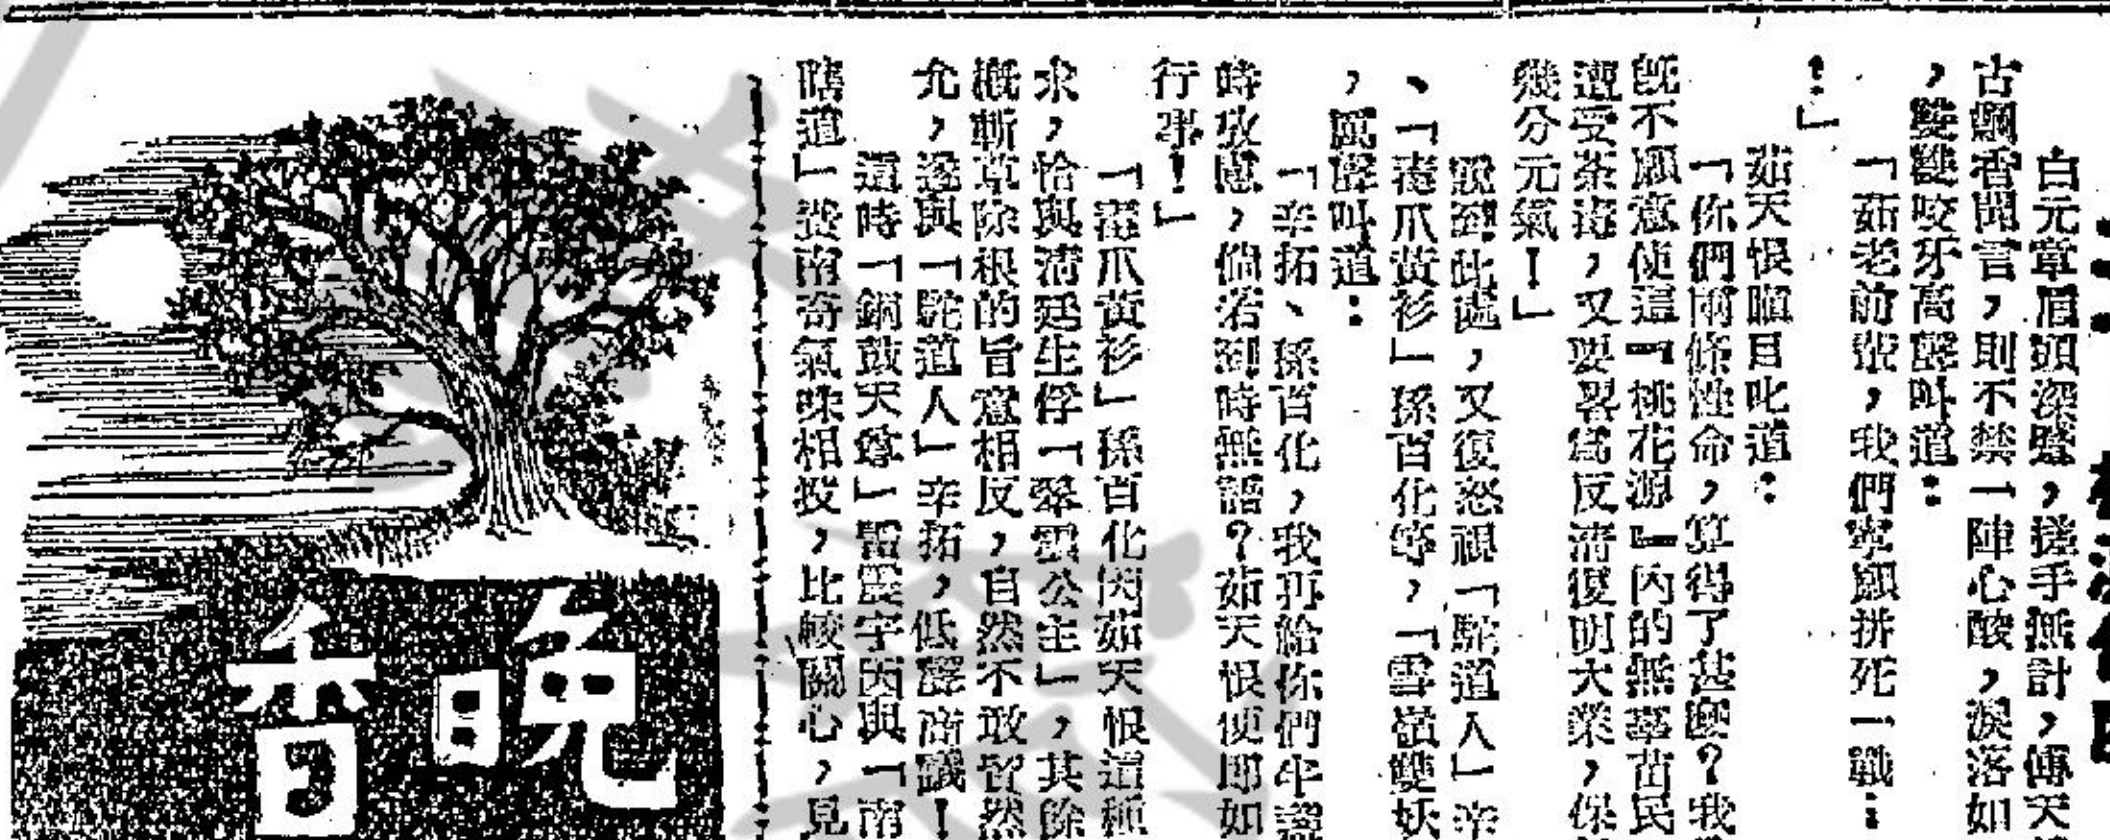 白元章眉頭深蹙，搓手無計，傅天
古飄香聞言，則不禁一陣心酸，淚落如
，雙雙咬牙高聲叫道：
「茹老前輩，我們寧願拼死一戰…
！」
茹天恨瞋目叱道：
「你們兩條性命，算得了甚麼？我
既不願意使這『桃花源』內的無辜苗民
遭受荼毒，又要畧爲反清復明大業，保
幾分元氣！」
說到此處，又復怒視「駝道人」辛
、「毒爪黃衫」孫百化等，「雪嶺雙妖
，厲聲叫道：
「辛拓、孫百化，我再給你們半盞
時攷慮，倘若到時無語？茹天恨便即如
行事！」
「毒爪黃衫」孫百化因茹天恨這種
求，恰與清廷生俘「翠雲公主」，其餘
概斬草除根的旨意相反，自然不敢貿然
允，遂與「駝道人」辛拓，低聲商議！
這時「鍋鼓天尊」聞震宇因與「南
瞎道」裴南奇氣味相投，比較關心，見
晚香